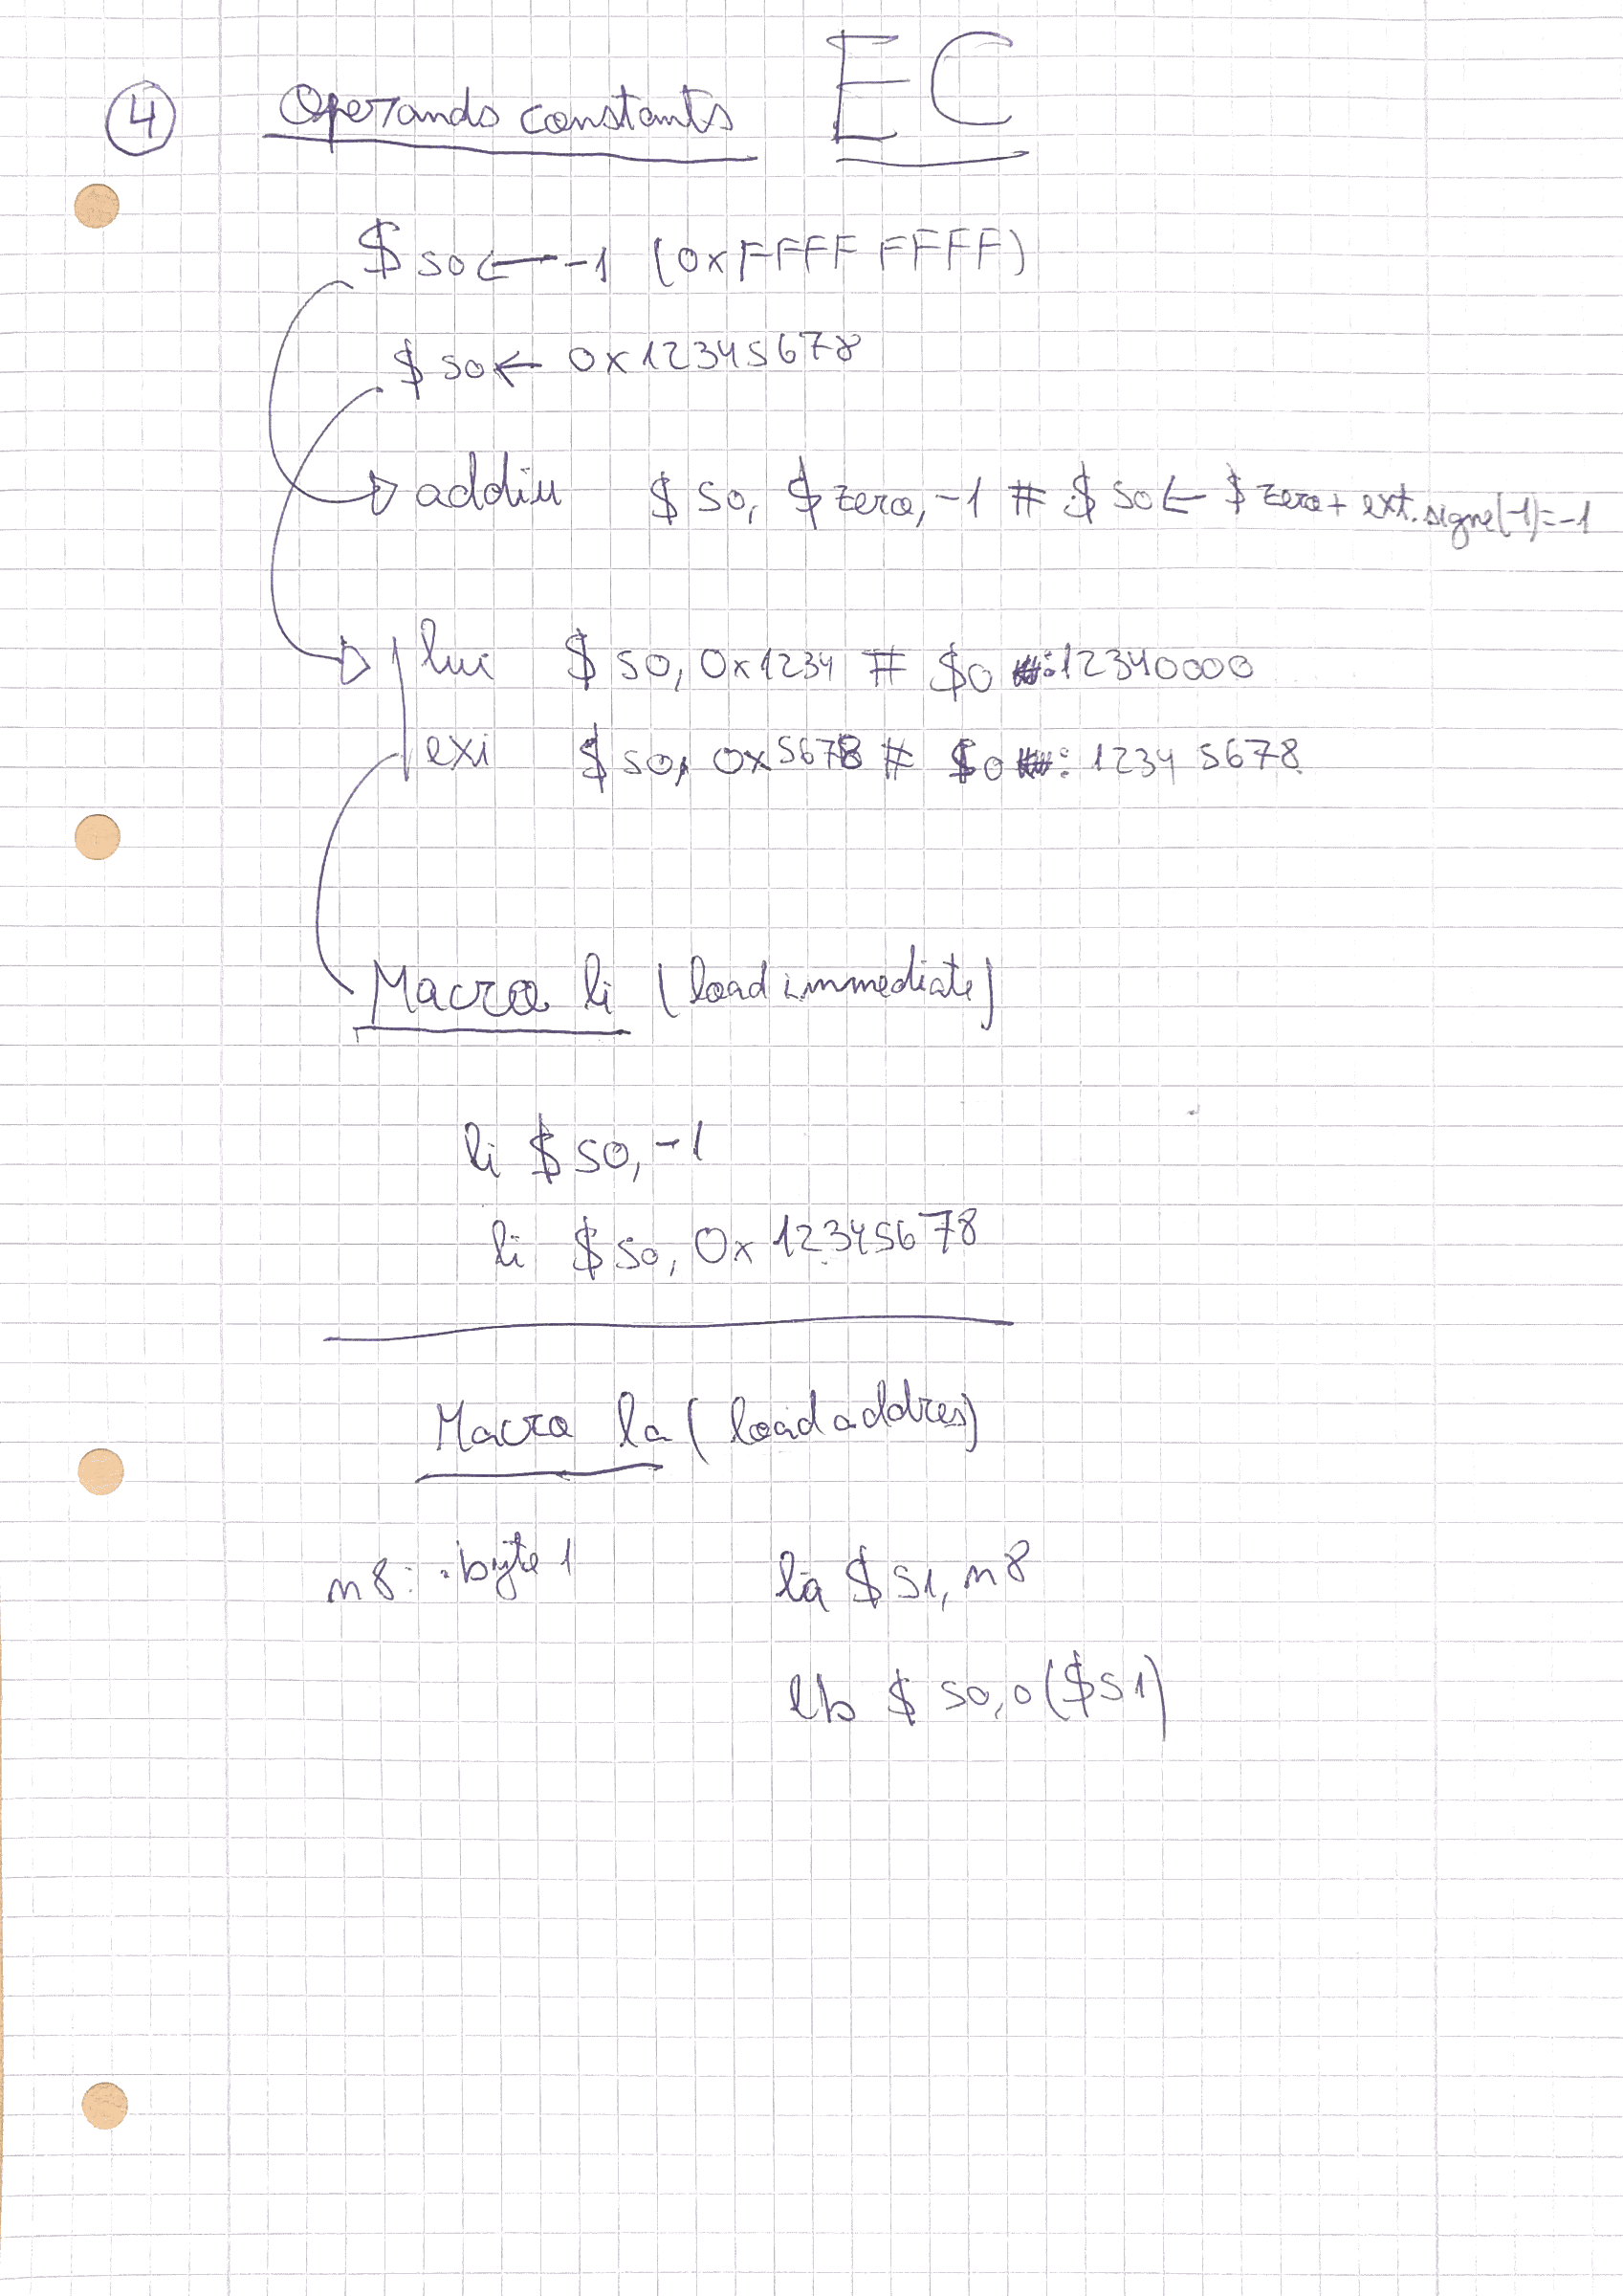 4 Operands constants EC
$s0 ← -1 (0xFFFF FFFF)
$s0 ← 0x12345678
addiu $s0, $zero, -1 # $s0 ← $zero + ext. signe(-1) = -1
lui $s0, 0x1234 # $0 : 12340000
exi $s0, 0x5678 # $0 : 1234 5678
Macro li (load immediate)
li $s0, -1
li $s0, 0x12345678
Macro la (load addres)
m8: .byte 1 la $s1, m8
lb $s0, 0($s1)